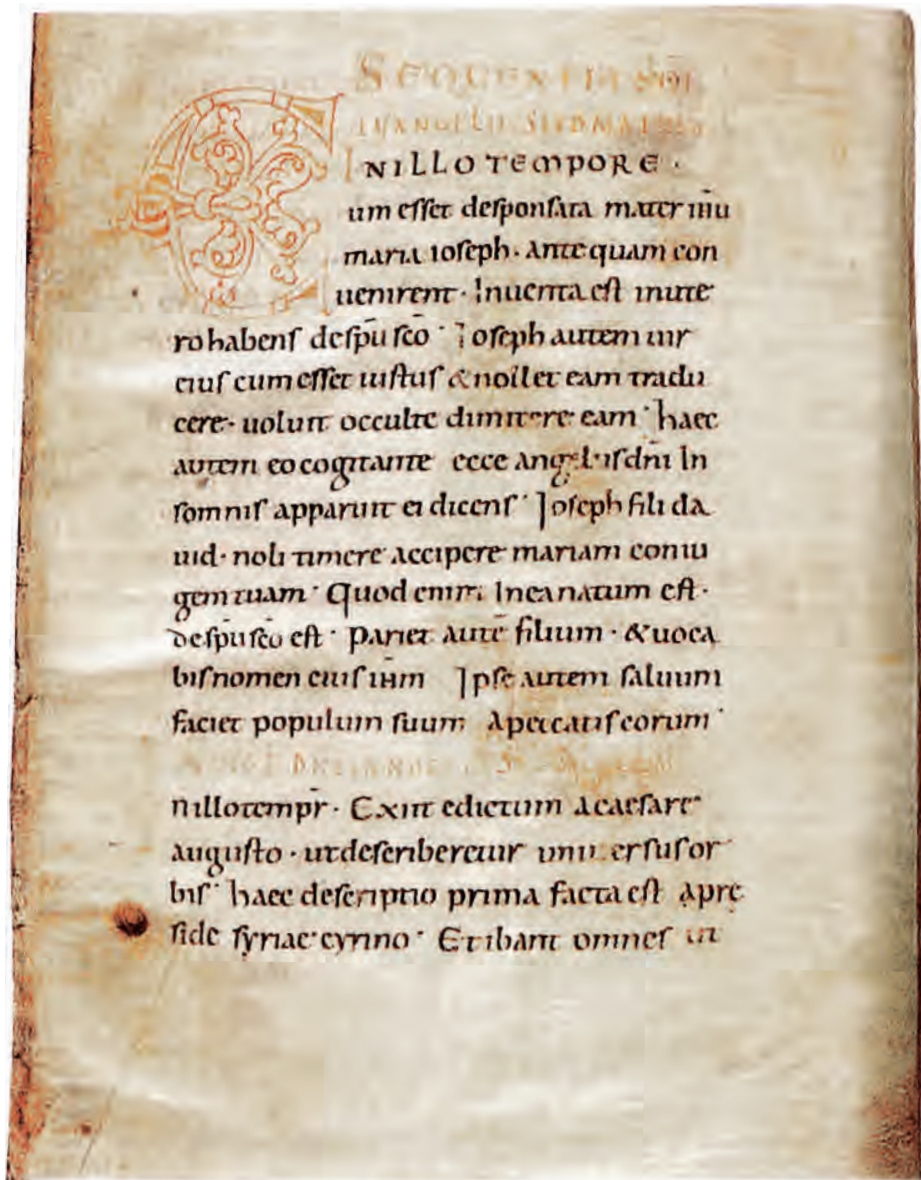 SEQUENTIA SCI
EUANGELII SCDM MATHEU
INILLO TEMPORE ·
Cum esset desponsata mater ihu
maria ioseph · ante quam con
uenirent · Inuenta est inute
ro habens despu sco · Ioseph autem uir
eius cum esset iustus & nollet eam tradu
cere · uoluit occulte dimittere eam · haec
autem eo cogitante ecce angelus dni In
somnis apparuit ei dicens · Ioseph fili da
uid · noli timere accipere mariam coniu
gem tuam · Quod enim Incanatum est ·
despusco est · pariet aute filium · &uoca
bisnomen eius ihm Ipse autem saluum
faciet populum suum Apeccatis eorum ·
nillotempr · Exiit edictum acaesare
augusto · utdescriberetur uniuersusor
bis · haec descriptio prima facta est apre
side syriae cyrino · Et ibant omnes ut